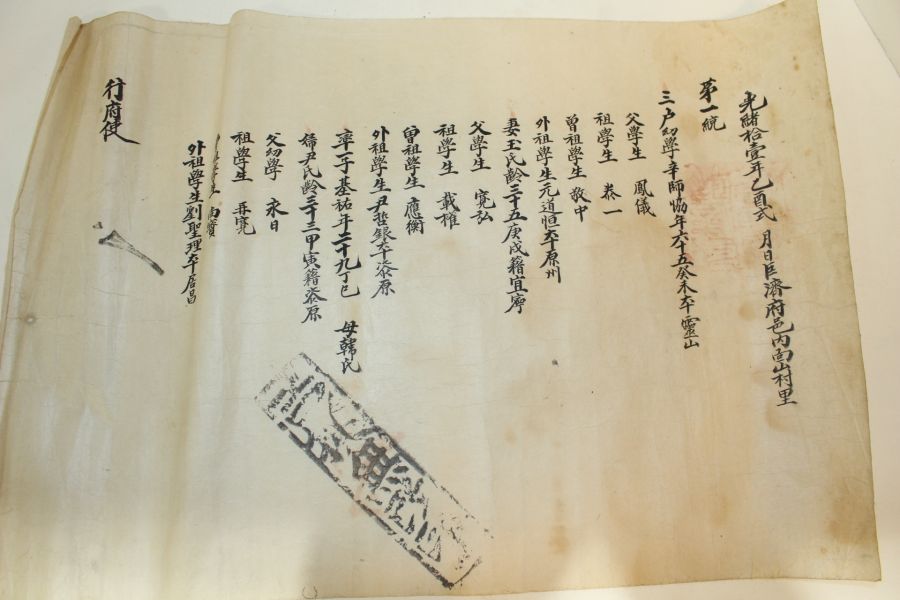 光緖拾壹年乙酉式 月日巨濟府邑內面山村里
第一統
三戶幼學辛師協年六十五癸未本靈山
父學生 鳳儀
祖學生 泰一
曾祖學生 敬中
外祖學生元道恒本原州
妻玉氏齡三十五庚戌籍宜寧
父學生 寬弘
祖學生 載權
曾祖學生 應衡
外祖學生尹哲銀本漆原
率子基祐年二十九丁巳 母韓氏
婦尹氏齡三十三甲寅籍漆原
父幼學 永日
祖學生 再寬
外祖學生劉聖理本居昌
行府使